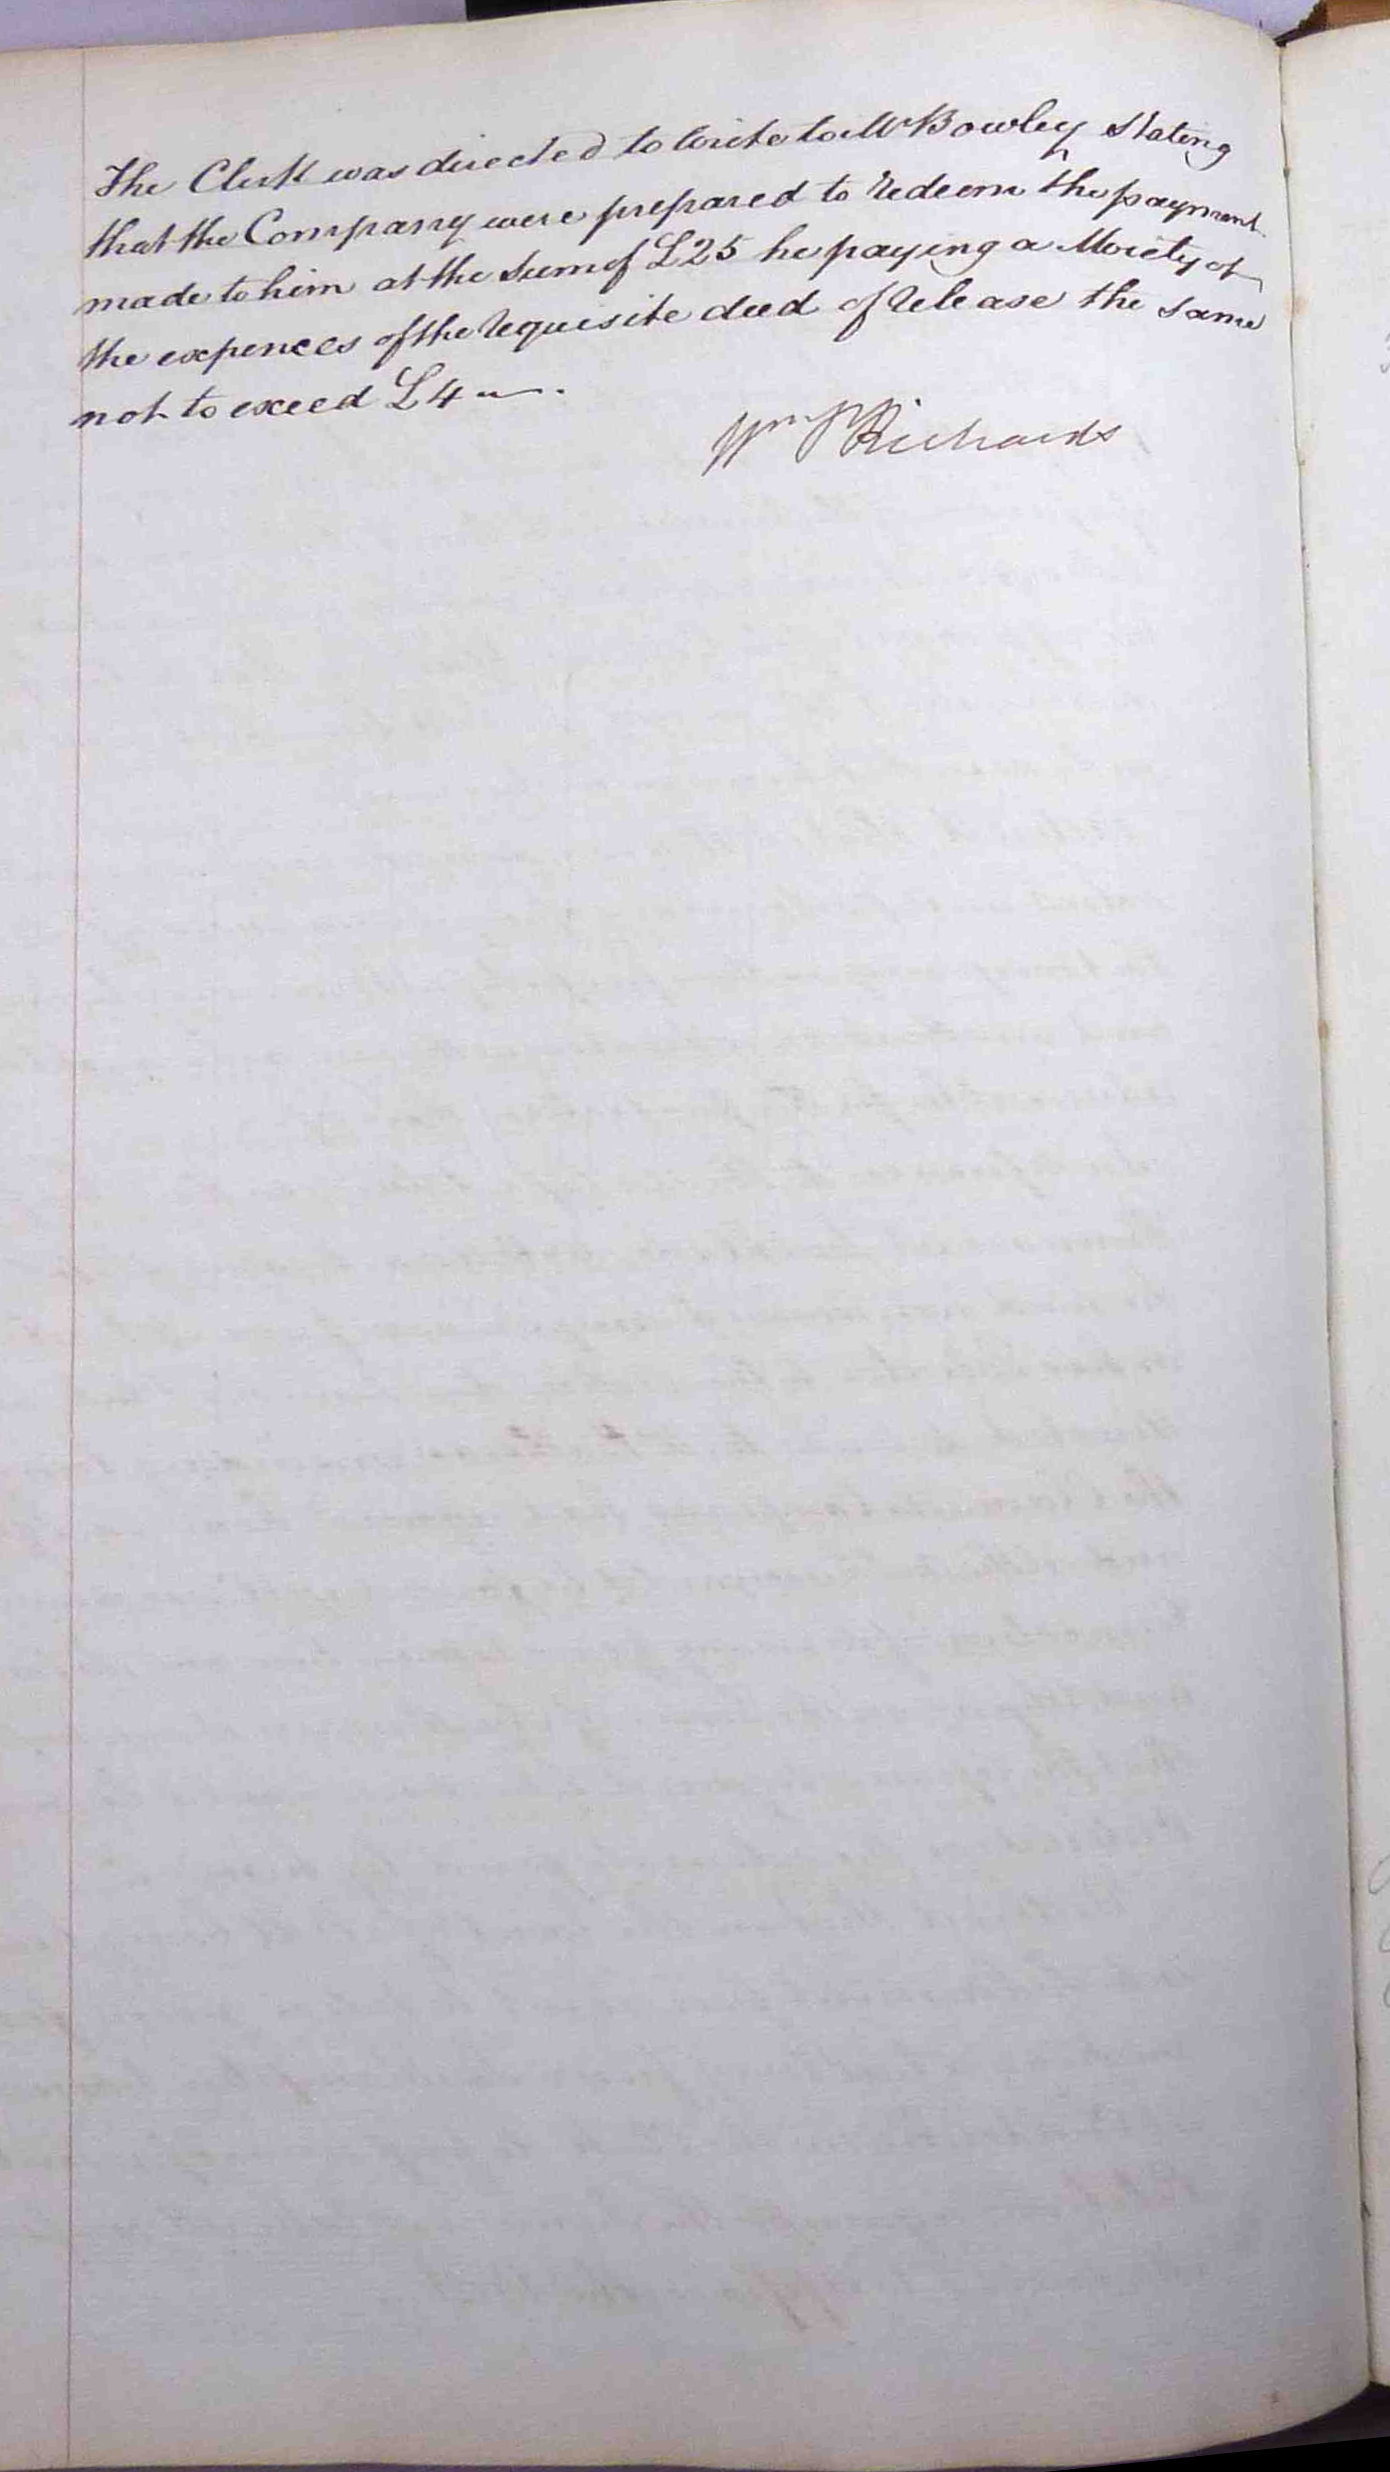 The Clerk was directed to write to Mr Bowley stating
that the Company were prepared to redeem the payment
made to him at the sum of £25 he paying a Moiety of
the expences of the requisite deed of release the same
not to exceed £4 —.
Wm P Richards